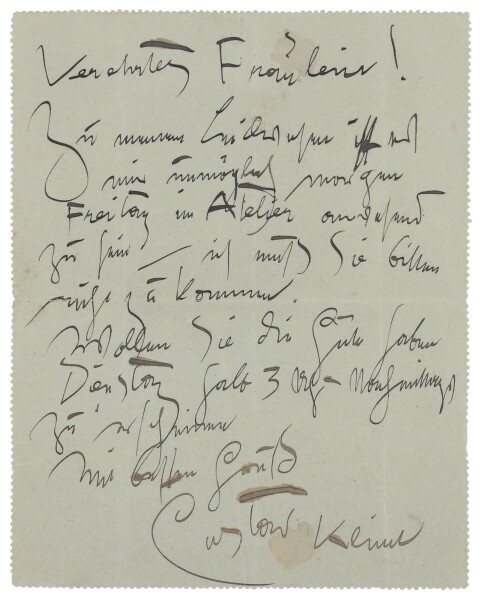 Verehrtes Fräulein!
Zu meinem Leidwesen ist es
mir unmöglich morgen
Freitag im Atelier anwesend
zu sein – ich muß Sie bitten
nicht zu kommen.
Wollen Sie die Güte haben
Dienstag halb 3 Uhr Nachmittags
zu erscheinen
Mit besten Gruß
Gustav Klimt